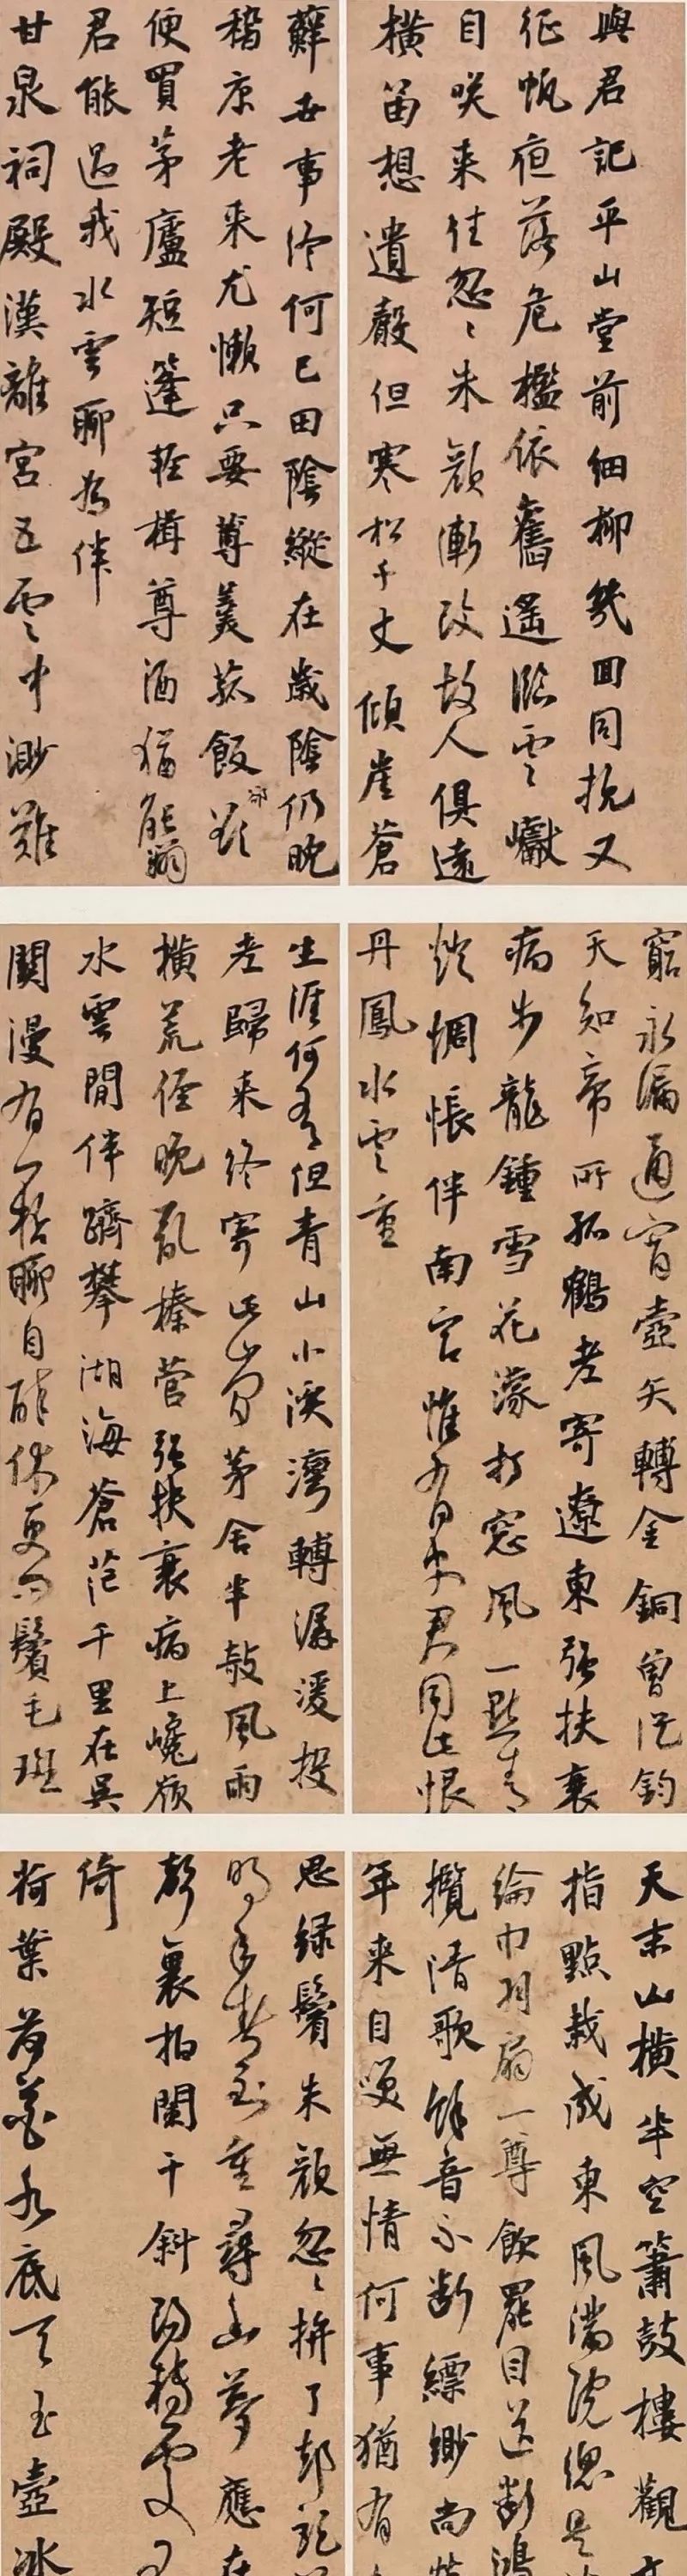 與君記平山堂前細柳幾回同挽又
征帆夜落危檻依舊遙臨雲巘
自笑来往忽〻朱顏漸改故人俱遠
橫笛想遺聲但寒松千丈傾崖蒼
蘚世事終何已田陰縱在歲陰仍晚
稽康老来尤懶只要蓴羹菰飯
便買茅廬短篷輕檝尊酒猶能
君能過我水雲聊為伴
甘泉祠殿漢離宮五雲中渺難
窮永漏通宵壺矢轉金銅曾從鈞
天知帝所孤鶴老寄遼東強扶衰
病步龍鍾雪花濛打窓風一點青
燈惆悵伴南宮惟有使君同此恨
丹鳳水雲重
生涯何有但青山小溪灣轉潺湲投
老歸来終寄此山間茅舍半敧風雨
橫荒徑晚亂榛菅強扶衰病上巉顏
水雲閒伴躋攀湖海蒼茫千里在吳
關漫有一杯聊自醉休更問鬢毛斑
天末山橫半空簫鼓樓觀
指點栽成東風滿院總是
綸巾羽扇一尊飲罷目送斷鴻
攬清歌餘音不斷縹緲尚
年来自笑無情何事猶有
思綠鬢朱顏忽〻拚了却花
明年春到重尋幽夢應在
聲裏拍闌干斜陽轉處
倚
荷葉荷花水底天玉壺冰